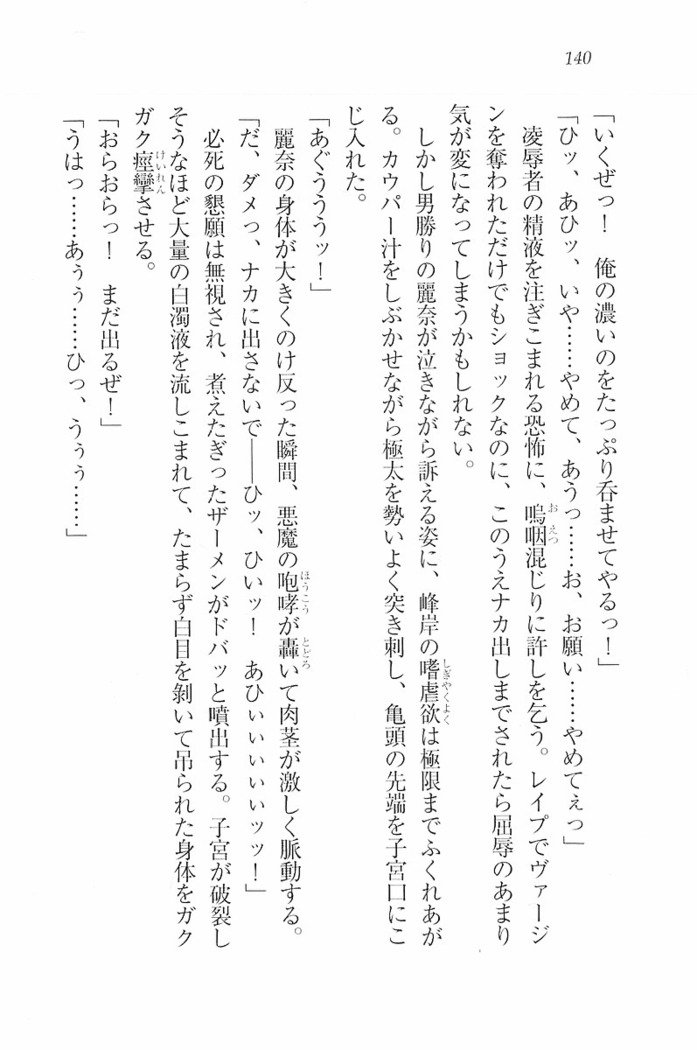 140
「いくぜっ！　俺の濃いのをたっぷり呑ませてやるっ！」
「ひッ、あひッ、いや……やめて、あうっ……お、お願い……やめてぇっ」
　凌辱者の精液を注ぎこまれる恐怖に、嗚咽混じりに許しを乞う。レイプでヴァージ
ンを奪われただけでもショックなのに、このうえナカ出しまでされたら屈辱のあまり
気が変になってしまうかもしれない。
　しかし男勝りの麗奈が泣きながら訴える姿に、峰岸の嗜虐欲は極限までふくれあが
る。カウパー汁をしぶかせながら極太を勢いよく突き刺し、亀頭の先端を子宮口にこ
じ入れた。
「あぐうううッ！」
　麗奈の身体が大きくのけ反った瞬間、悪魔の咆哮が轟いて肉茎が激しく脈動する。
「だ、ダメっ、ナカに出さないで――ひッ、ひいッ！　あひぃぃぃぃぃッッ！」
　必死の懇願は無視され、煮えたぎったザーメンがドバッと噴出する。子宮が破裂し
そうなほど大量の白濁液を流しこまれて、たまらず白目を剝いて吊られた身体をガク
ガク痙攣させる。
「おらおらっ！　まだ出るぜ！」
「うはっ……あぅぅ……ひっ、うぅぅ……」